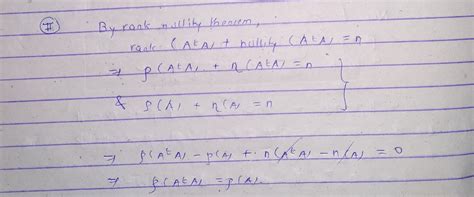 (II) By rank nullity theorem,
rank (AᵗA) + nullity (AᵗA) = n
⇒ ρ(AᵗA) + η(AᵗA) = n
& ρ(A) + η(A) = n
⇒ ρ(AᵗA) - ρ(A) + η(AᵗA) - η(A) = 0
⇒ ρ(AᵗA) = ρ(A)